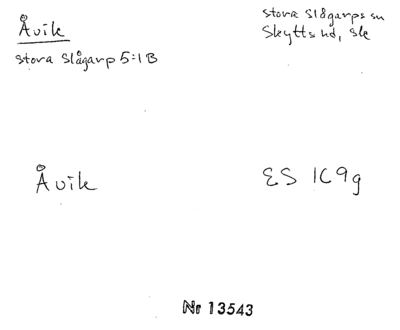 Åvik
Stora Slågarp 5:1 B
Stora Slågarps sn
Skytts hd, Sk
Åvik
ES 1C9g
Nr 13543